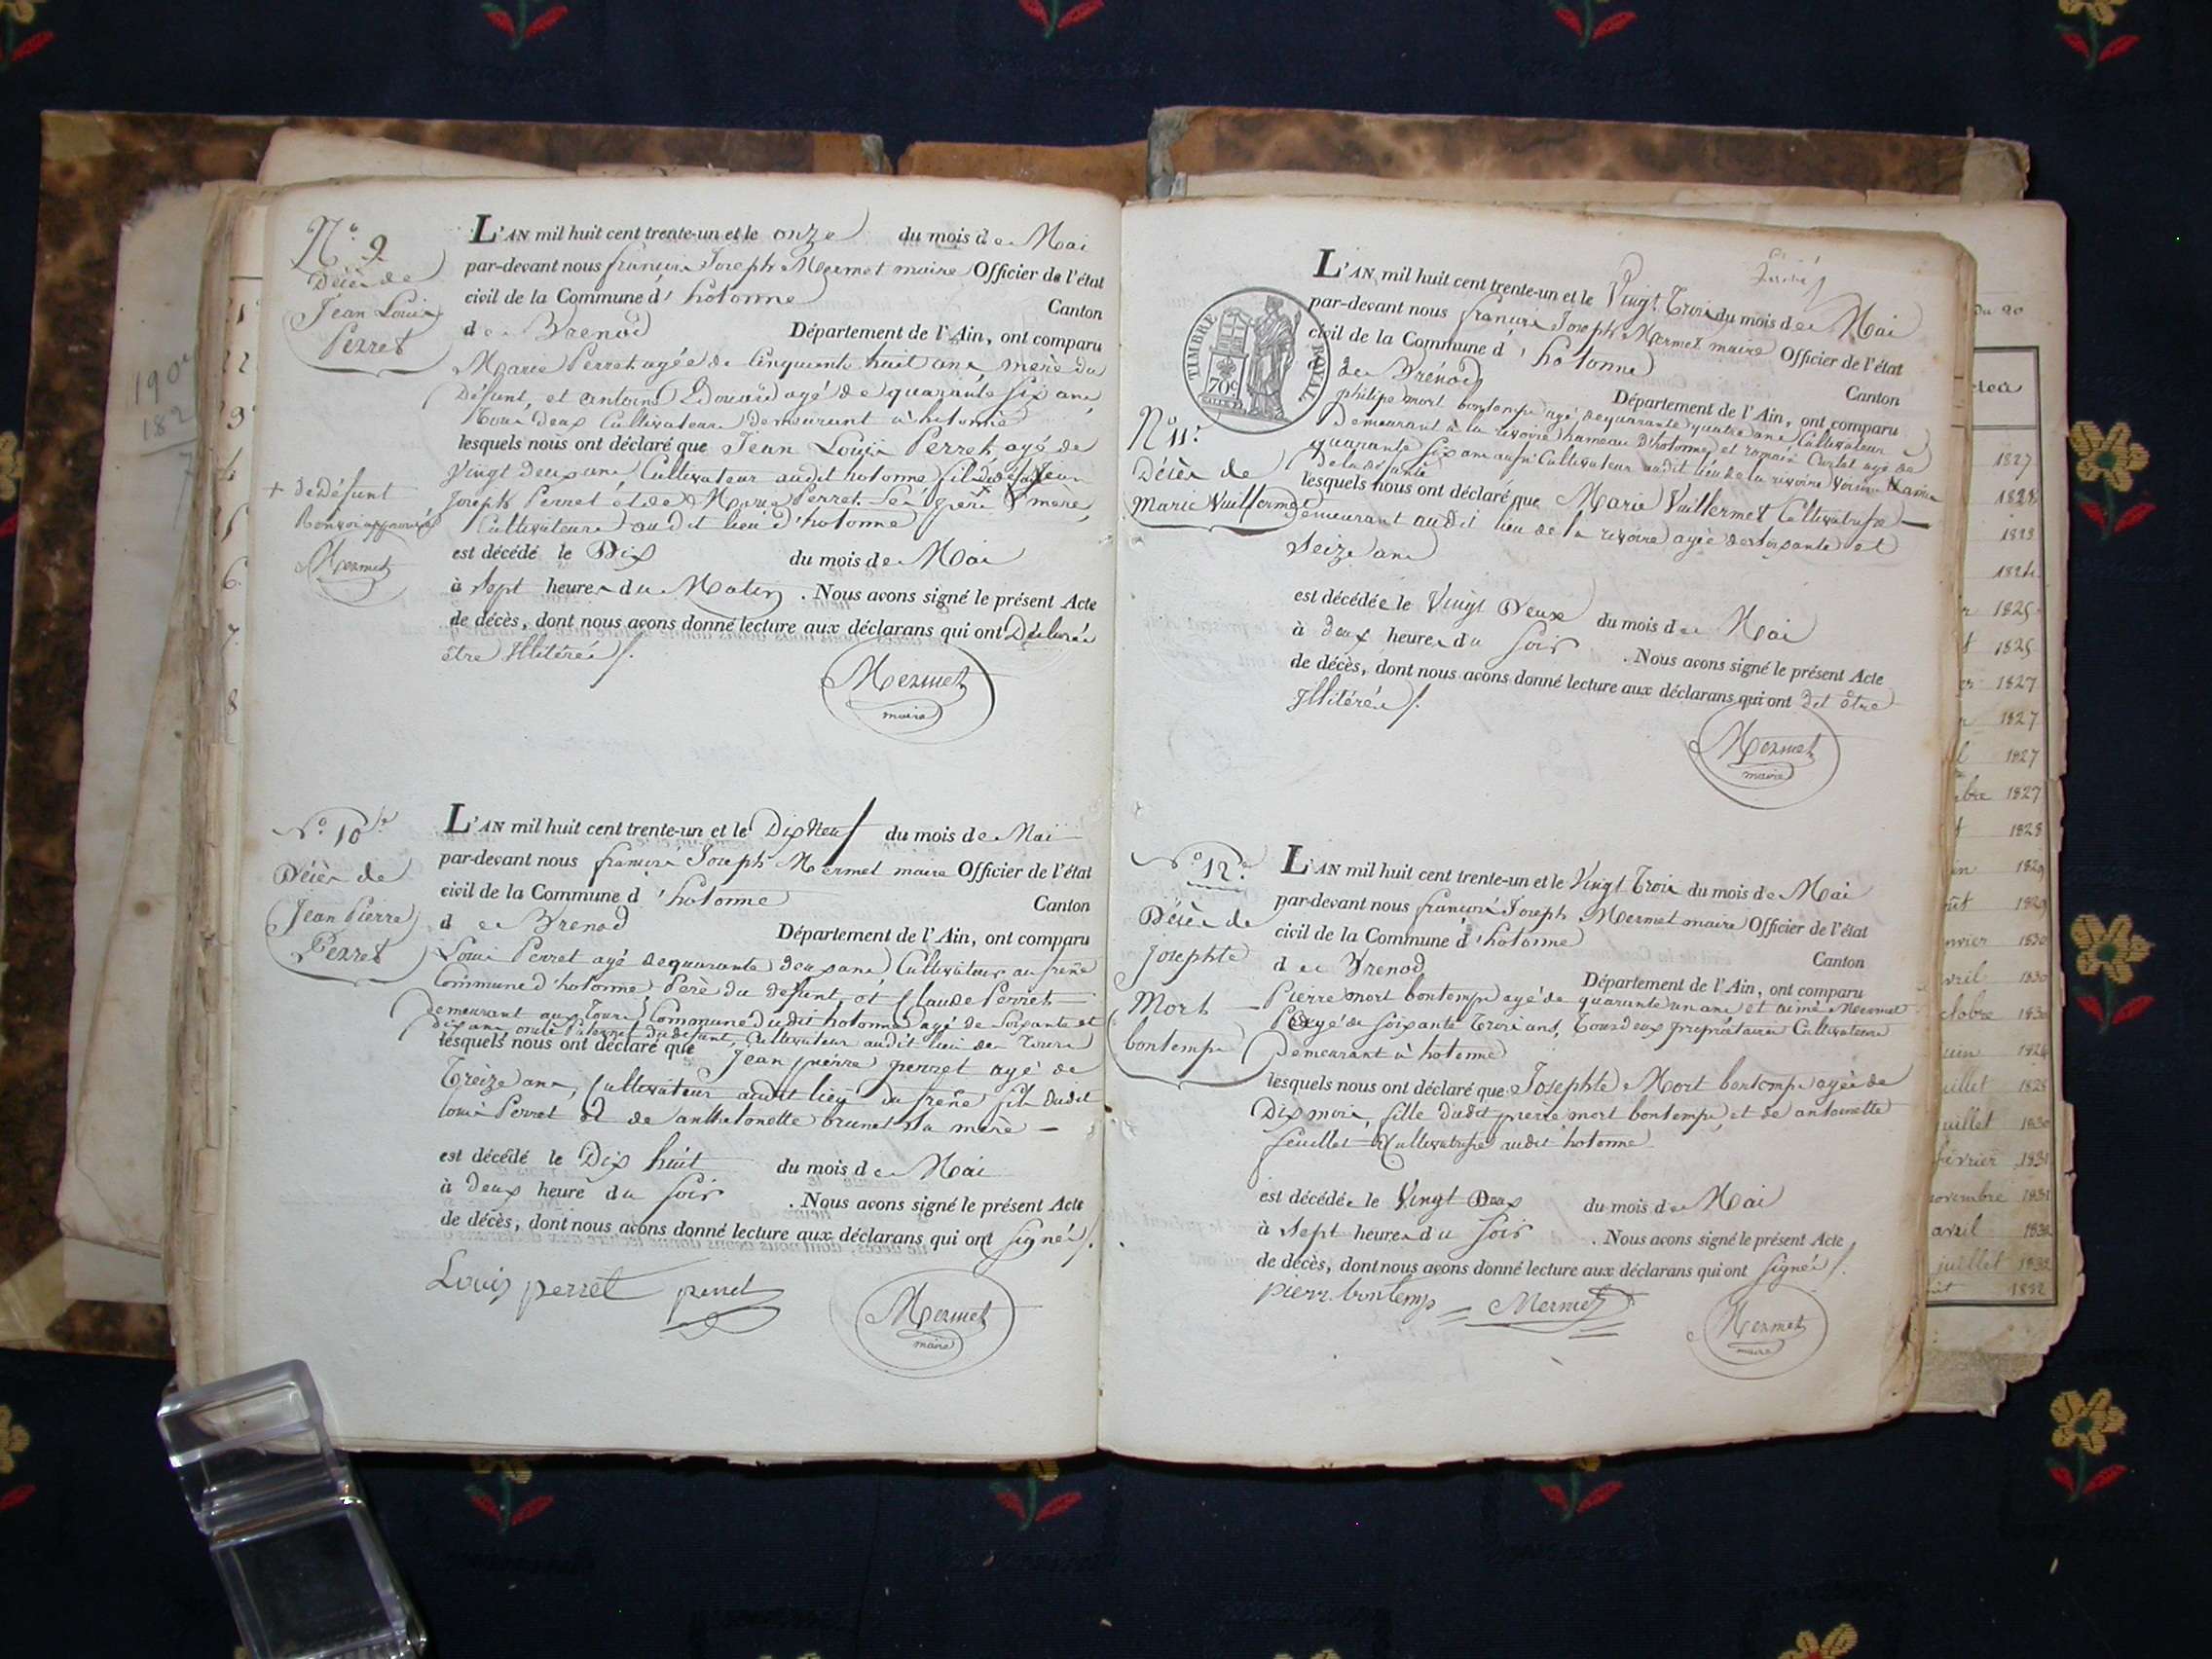 N° 9
Décès de
Jean Louis
Perret
L'AN mil huit cent trente-un et le onze du mois de Mai
par-devant nous françois Joseph Mermet maire Officier de l'état
civil de la Commune d'hotonne
Canton
de Brenod Département de l'Ain, ont comparu
Marie Perret agée de Cinquante huit ans, mere du
Défunt, et antoine Edouard agé de quarante six ans
Tous deux Cultivateurs demeurant à hotonne
lesquels nous ont déclaré que Jean Louis Perret, agé de
Vingt deux ans, Cultivateur audit hotonne, fils Jean
Joseph Perret et de Marie Perret Ses père & mere,
Cultivateurs au dit lieu d'hotonne
+ de Défunt
Renvoi approuvé
Mermet
est décédé le Dix du mois de Mai
à Sept heures du Matin . Nous avons signé le présent Acte
de décès, dont nous avons donné lecture aux déclarans qui ont Déclarés
être Illitérés /.
Mermet
maire
N° 10
Décès de
Jean Pierre
Perret
L'AN mil huit cent trente-un et le Dix Neuf du mois de Mai
par-devant nous françois Joseph Mermet maire Officier de l'état
civil de la Commune d'hotonne
Canton
de Brenod Département de l'Ain, ont comparu
Louis Perret agé de quarante deux ans Cultivateur au frêne
Commune d'hotonne, Pere du defunt, et Claude Perret
Demeurant aux Toures, Commune dudit hotonne agé de Soixante et
dix ans oncle Paternel du défunt, Cultivateur audit lieu des Toures
lesquels nous ont déclaré que Jean pierre perret agé de
Treize ans, Cultivateur audit lieu du frêne fils dudit
Louis Perret et de anthelonette brunet sa mere
est décédé le Dix huit du mois de Mai
à deux heure du Soir . Nous avons signé le présent Acte
de décès, dont nous avons donné lecture aux déclarans qui ont Signés /.
Louis perret perret
Mermet
maire
TIMBRE ROYAL
70c
N° 11
Décès de
Marie Vuillermet
L'AN mil huit cent trente-un et le Vingt Trois du mois de Mai
par-devant nous françois Joseph Mermet maire Officier de l'état
civil de la Commune d'hotonne
Canton
de Brénod Département de l'Ain, ont comparu
philipe mort bontemps agé de quarante quatre ans Cultivateur
Demeurant à la rivoire hameau d'hotonne, et romain Curlet agé de
quarante six ans aussi Cultivateur audit lieu de la rivoire Voisins
de la défunte
lesquels nous ont déclaré que Marie Vuillermet Cultivatrice
Demeurant audit lieu de la rivoire agée de soixante et
Seize ans
est décédée le Vingt Deux du mois de Mai
à deux heures du Soir . Nous avons signé le présent Acte
de décès, dont nous avons donné lecture aux déclarans qui ont dit être
Illitérés /.
Mermet
maire
N° 12
Décès de
Josephte
Mort
bontemps
L'AN mil huit cent trente-un et le Vingt Trois du mois de Mai
par-devant nous françois Joseph Mermet maire Officier de l'état
civil de la Commune d'hotonne
Canton
de Brenod Département de l'Ain, ont comparu
Pierre mort bontemps agé de quarante un ans et aimé Mermet
agé de soixante Trois ans, Tous deux propriétaires Cultivateurs
Demeurant à hotonne
lesquels nous ont déclaré que Josephte Mort bontemps agée de
Dix mois, fille dudit pierre mort bontemps, et de antoinette
feuillet Cultivatrice audit hotonne
est décédée le Vingt Deux du mois de Mai
à Sept heures du Soir . Nous avons signé le présent Acte
de décès, dont nous avons donné lecture aux déclarans qui ont Signés /.
pierr. bontemp Mermet
Mermet
maire
1827
1828
1825
1825
1827
1827
1827
1827
1828
1829
1829
1830
1830
juillet 1830
février 1831
novembre 1831
avril
juillet 1832
1832